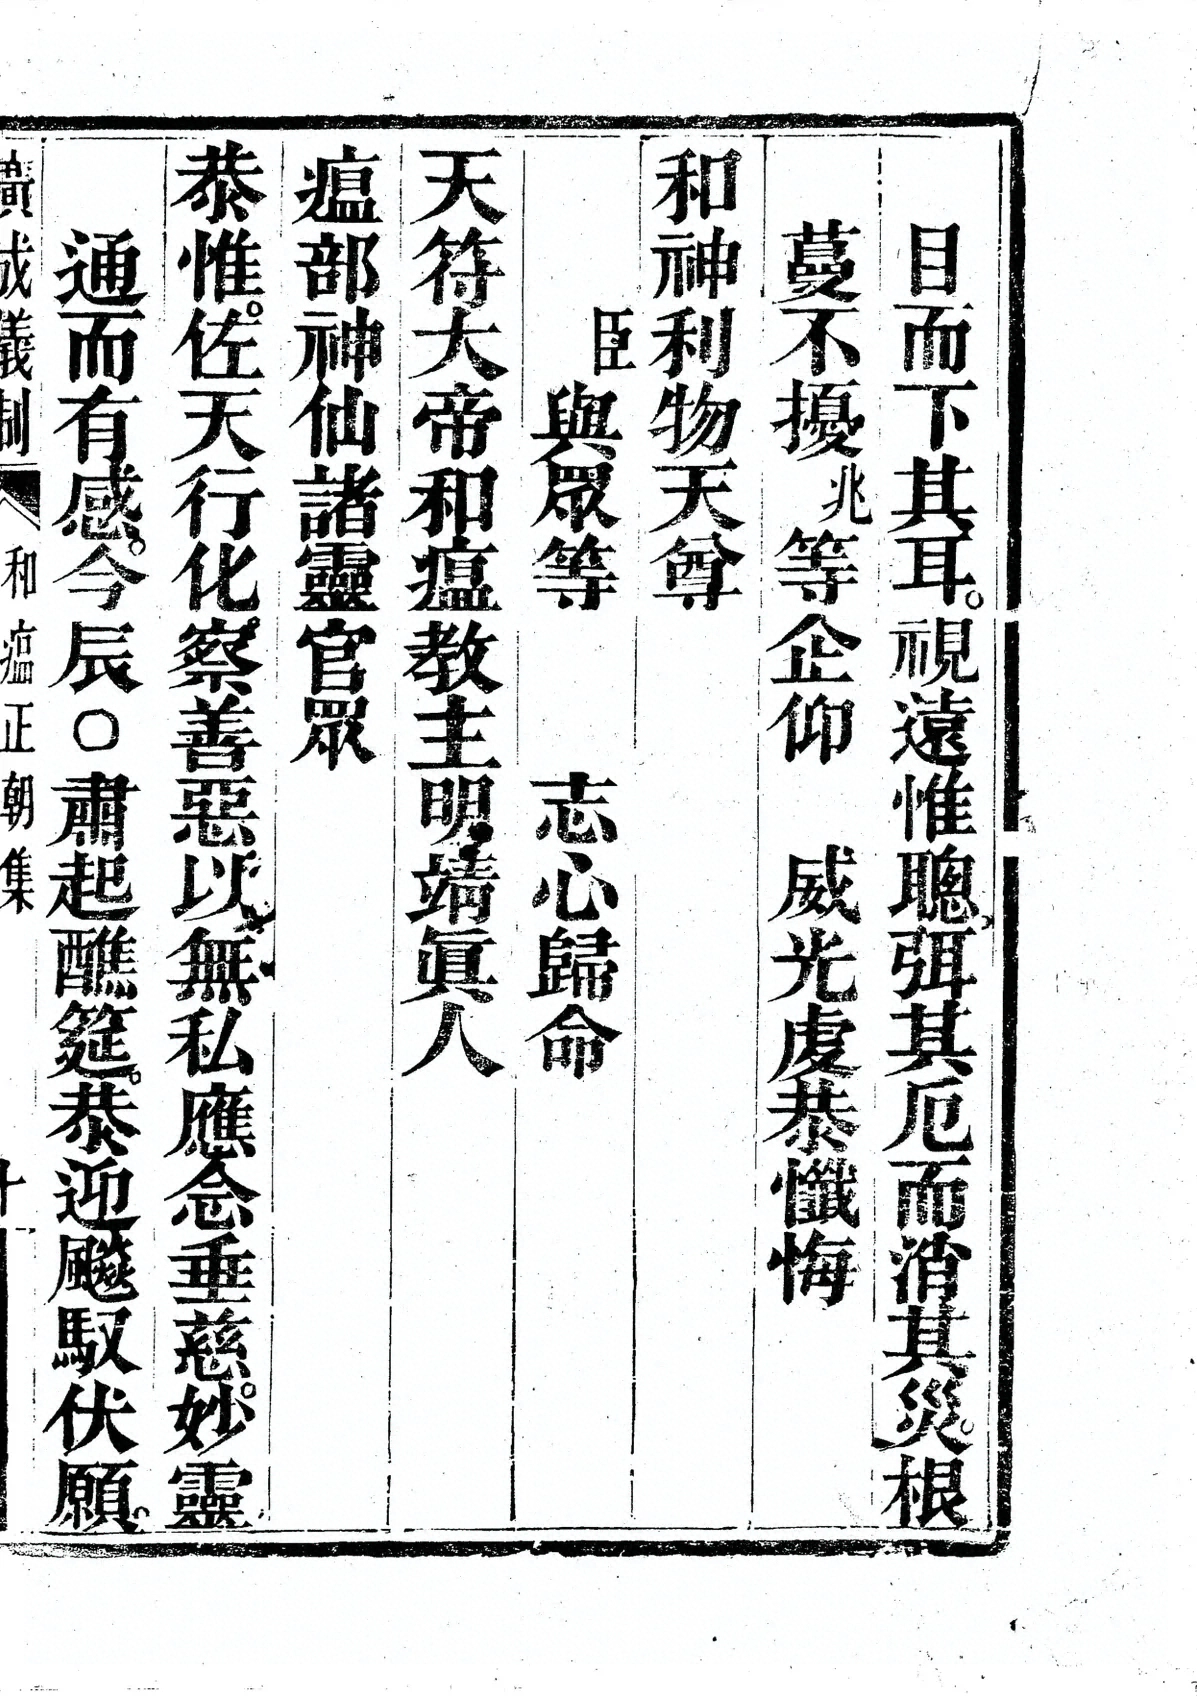 目而下其耳。視遠惟聰。弭其厄而消其災。根
蔓不擾兆等企仰　威光虔恭懺悔
和神利物天尊
臣與眾等　志心歸命
天符大帝和瘟教主明靖眞人
瘟部神仙諸靈官眾
恭惟。佐天行化。察善惡以無私應念垂慈。妙靈
通而有感。今辰○肅起醮筵。恭迎飈馭伏願。
廣成儀制　和瘟正朝集　十